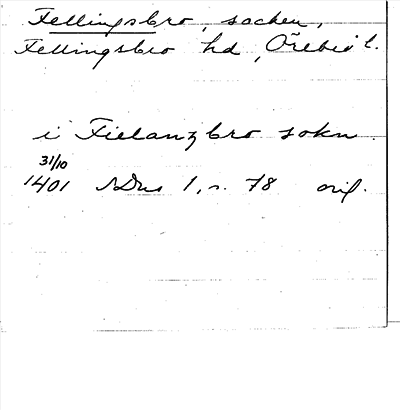 Fellingsbro, socken,
Fellingsbro hd, Örebro l.
i Fielanzbro sokn
31/10
1401 SDns 1, n. 78 orig.